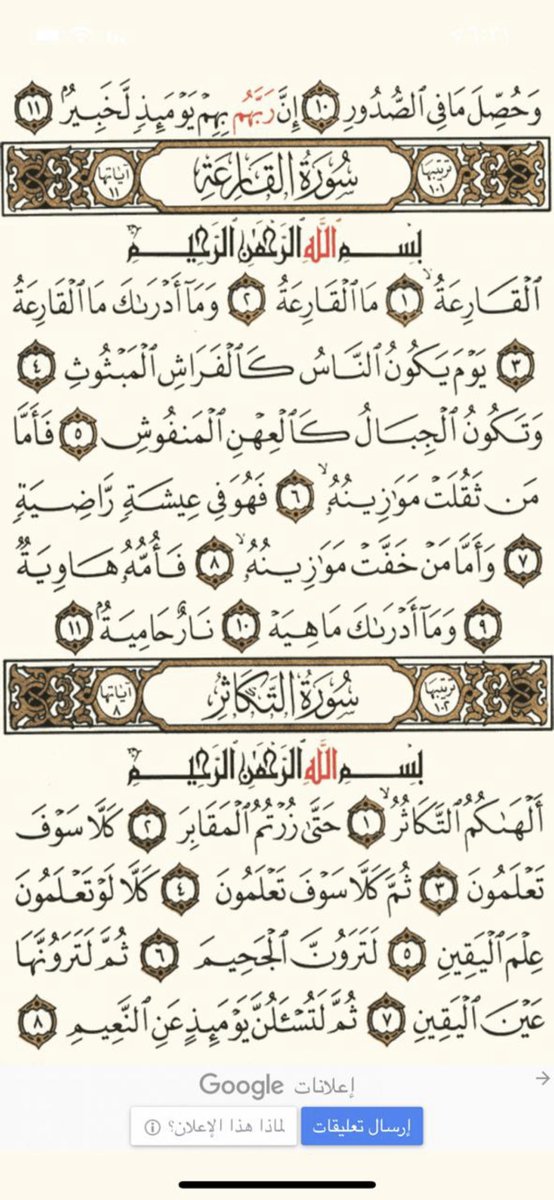 وَحُصِّلَ مَا فِي ٱلصُّدُورِ ١٠ إِنَّ رَبَّهُم بِهِمْ يَوْمَئِذٍ لَّخَبِيرٌۢ ١١
ترتيبها ١٠١ سُورَةُ ٱلْقَارِعَةِ آياتها ١١
بِسْمِ ٱللَّهِ ٱلرَّحْمَٰنِ ٱلرَّحِيمِ
ٱلْقَارِعَةُ ١ مَا ٱلْقَارِعَةُ ٢ وَمَآ أَدْرَىٰكَ مَا ٱلْقَارِعَةُ
٣ يَوْمَ يَكُونُ ٱلنَّاسُ كَٱلْفَرَاشِ ٱلْمَبْثُوثِ ٤
وَتَكُونُ ٱلْجِبَالُ كَٱلْعِهْنِ ٱلْمَنفُوشِ ٥ فَأَمَّا
مَن ثَقُلَتْ مَوَٰزِينُهُۥ ٦ فَهُوَ فِي عِيشَةٍ رَّاضِيَةٍ
٧ وَأَمَّا مَنْ خَفَّتْ مَوَٰزِينُهُۥ ٨ فَأُمُّهُۥ هَاوِيَةٌ
٩ وَمَآ أَدْرَىٰكَ مَا هِيَهْ ١٠ نَارٌ حَامِيَةٌۢ ١١
ترتيبها ١٠٢ سُورَةُ ٱلتَّكَاثُرِ آياتها ٨
بِسْمِ ٱللَّهِ ٱلرَّحْمَٰنِ ٱلرَّحِيمِ
أَلْهَىٰكُمُ ٱلتَّكَاثُرُ ١ حَتَّىٰ زُرْتُمُ ٱلْمَقَابِرَ ٢ كَلَّا سَوْفَ
تَعْلَمُونَ ٣ ثُمَّ كَلَّا سَوْفَ تَعْلَمُونَ ٤ كَلَّا لَوْ تَعْلَمُونَ
عِلْمَ ٱلْيَقِينِ ٥ لَتَرَوُنَّ ٱلْجَحِيمَ ٦ ثُمَّ لَتَرَوُنَّهَا
عَيْنَ ٱلْيَقِينِ ٧ ثُمَّ لَتُسْـَٔلُنَّ يَوْمَئِذٍ عَنِ ٱلنَّعِيمِ ٨
إعلانات Google
إرسال تعليقات لماذا هذا الإعلان؟